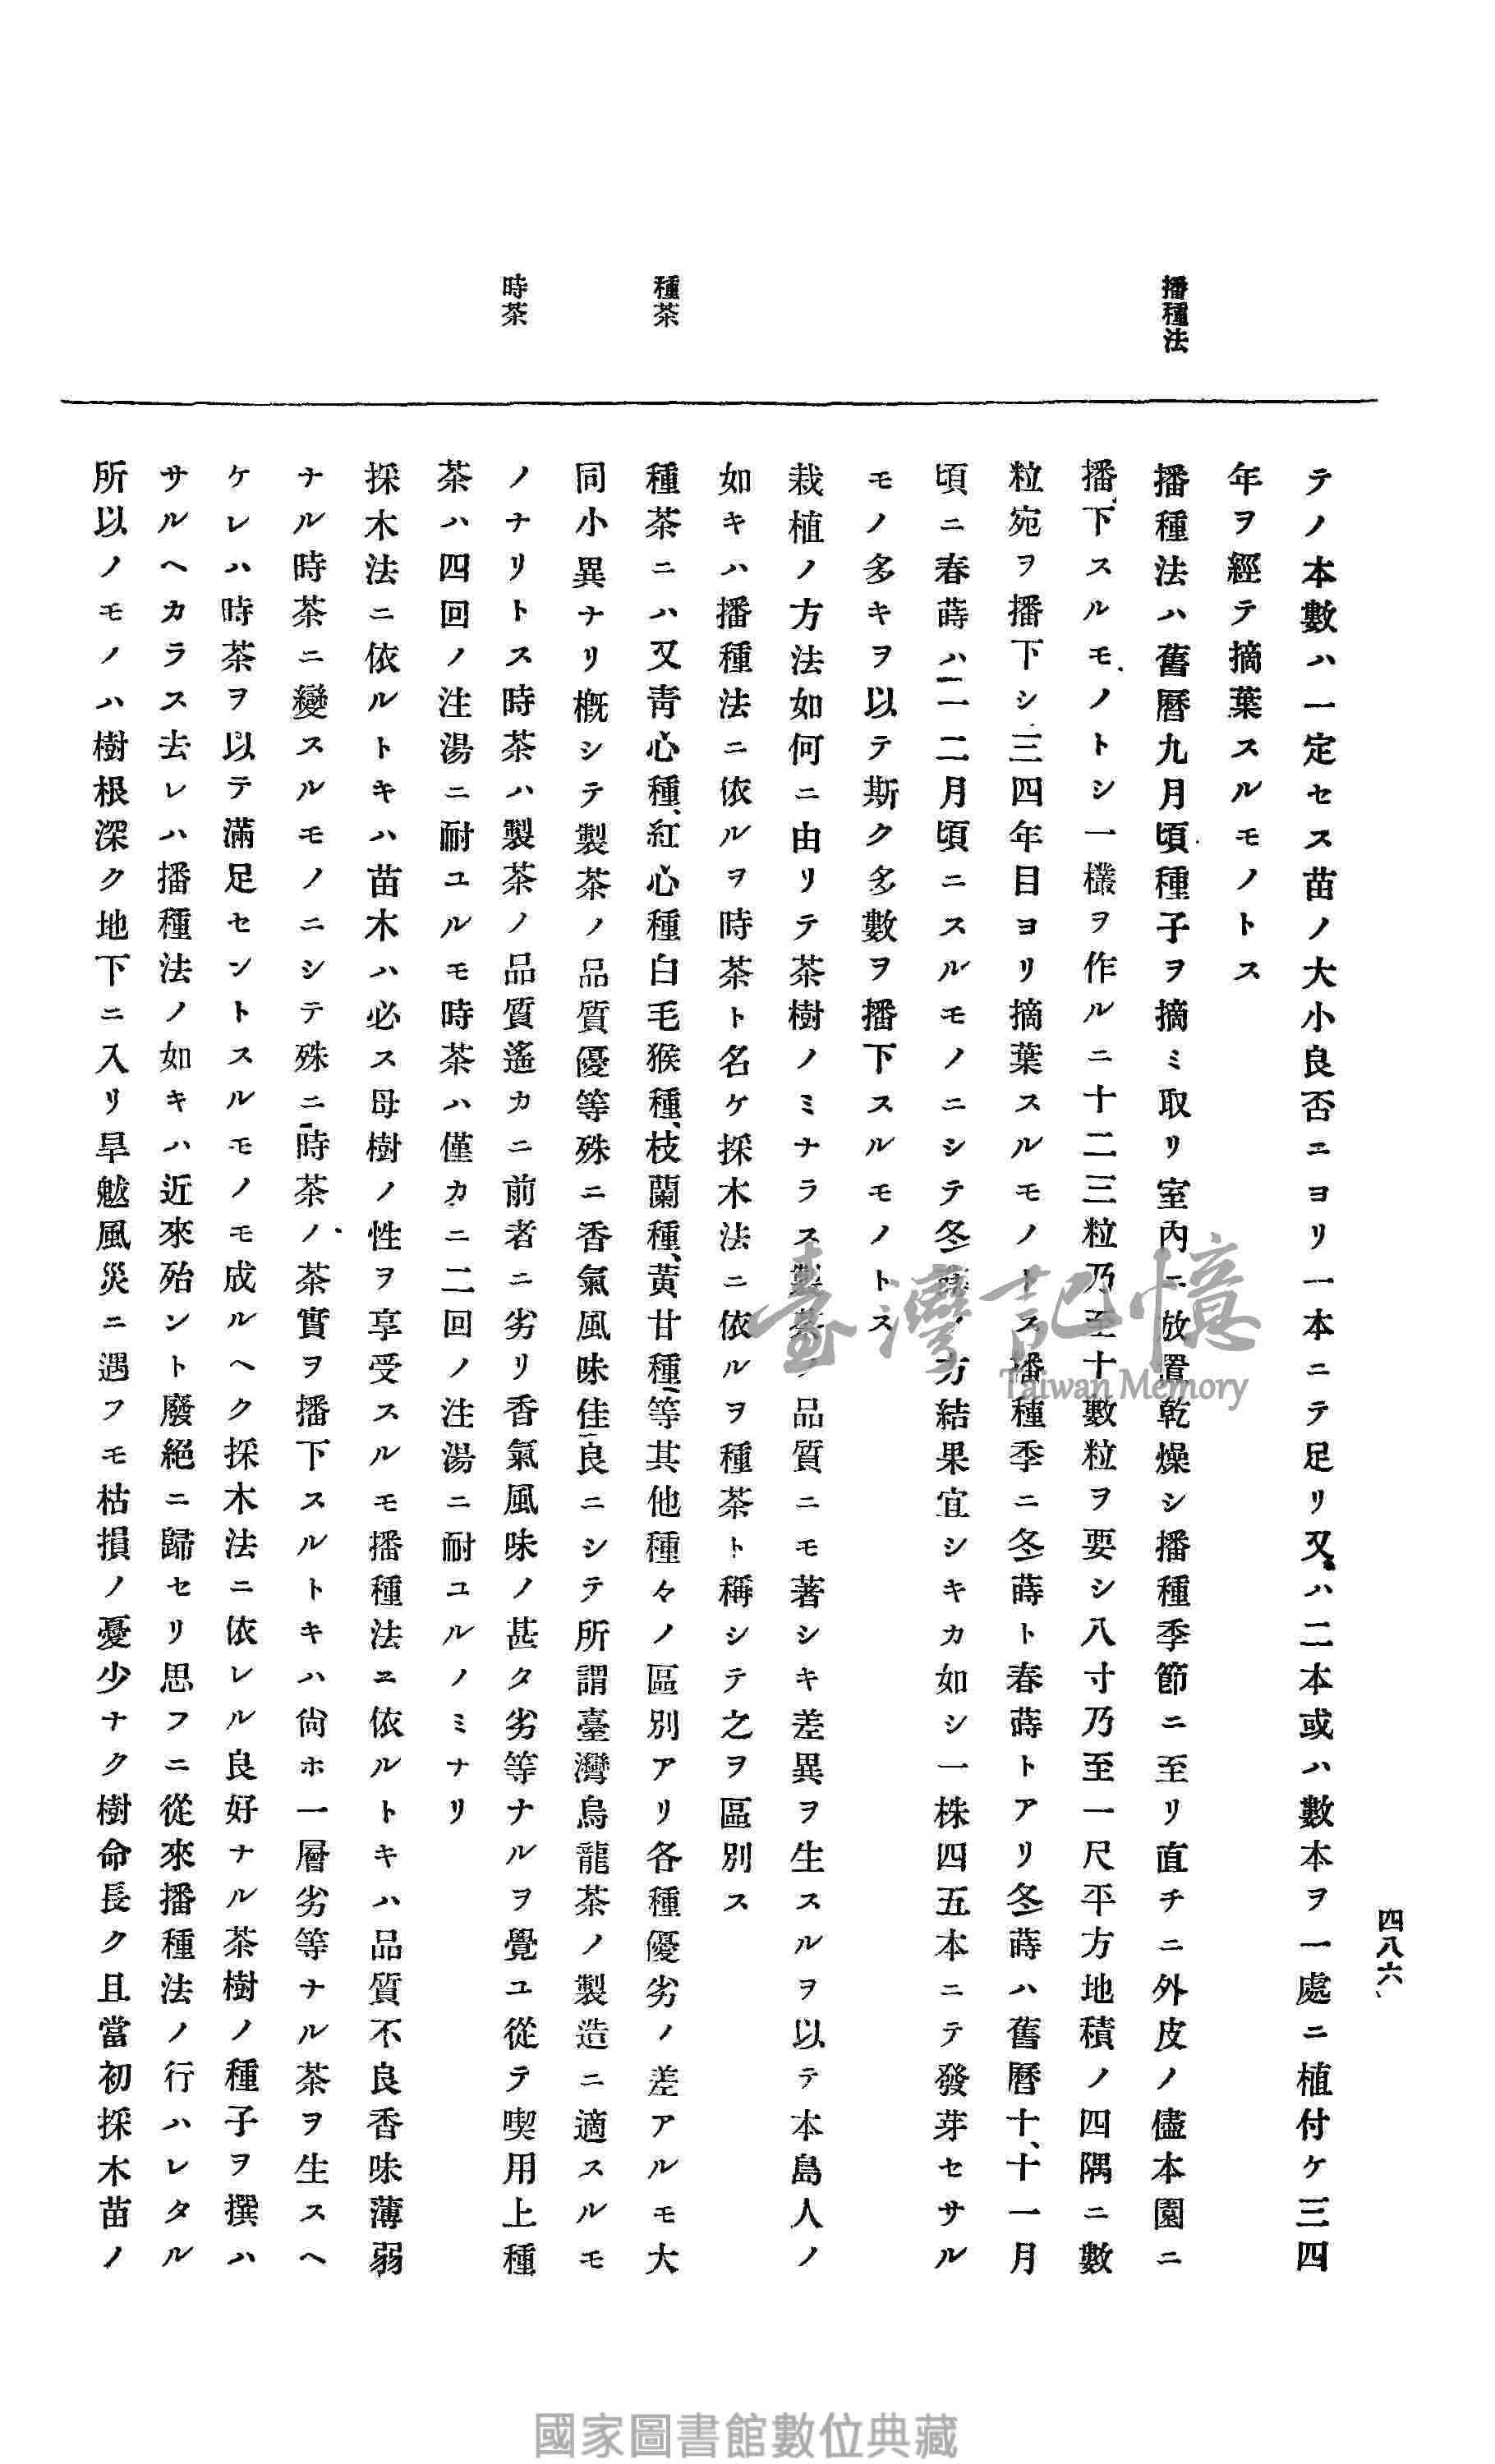 四八六
播種法
種茶
時茶
テノ本數ハ一定セス苗ノ大小良否ニヨリ一本ニテ足リ又ハ二本或ハ數本ヲ一處ニ植付ケ三四
年ヲ經テ摘葉スルモノトス
播種法ハ舊曆九月頃種子ヲ摘ミ取リ室內ニ放置乾燥シ播種季節ニ至リ直チニ外皮ノ儘本園ニ
播下スルモノトシ一欉ヲ作ルニ十二三粒乃至十數粒ヲ要シ八寸乃至一尺平方地積ノ四隅ニ數
粒宛ヲ播下シ三四年目ヨリ摘葉スルモノトス播種季ニ冬蒔ト春蒔トアリ冬蒔ハ舊曆十、十一月
頃ニ春蒔ハ一二月頃ニスルモノニシテ冬蒔ノ方結果宜シキカ如シ一株四五本ニテ發芽セサル
モノ多キヲ以テ斯ク多數ヲ播下スルモノトス
栽植ノ方法如何ニ由リテ茶樹ノミナラス製茶ノ品質ニモ著シキ差異ヲ生スルヲ以テ本島人ノ
如キハ播種法ニ依ルヲ時茶ト名ケ採木法ニ依ルヲ種茶ト稱シテ之ヲ區別ス
種茶ニハ又靑心種、紅心種白毛猴種、枝蘭種、黃甘種等其他種々ノ區別アリ各種優劣ノ差アルモ大
同小異ナリ槪シテ製茶ノ品質優等殊ニ香氣風味佳良ニシテ所謂臺灣烏龍茶ノ製造ニ適スルモ
ノナリトス時茶ハ製茶ノ品質遙カニ前者ニ劣リ香氣風味ノ甚タ劣等ナルヲ覺ユ從テ喫用上種
茶ハ四回ノ注湯ニ耐ユルモ時茶ハ僅カニ二回ノ注湯ニ耐ユルノミナリ
採木法ニ依ルトキハ苗木ハ必ス母樹ノ性ヲ享受スルモ播種法ニ依ルトキハ品質不良香味薄弱
ナル時茶ニ變スルモノニシテ殊ニ時茶ノ茶實ヲ播下スルトキハ尙ホ一層劣等ナル茶ヲ生スヘ
ケレハ時茶ヲ以テ滿足セントスルモノモ成ルヘク採木法ニ依レル良好ナル茶樹ノ種子ヲ撰ハ
サルヘカラス去レハ播種法ノ如キハ近來殆ント廢絕ニ歸セリ思フニ從來播種法ノ行ハレタル
所以ノモノハ樹根深ク地下ニ入リ旱魃風災ニ遇フモ枯損ノ憂少ナク樹命長ク且當初採木苗ノ
臺灣記憶
Taiwan Memory
國家圖書館數位典藏